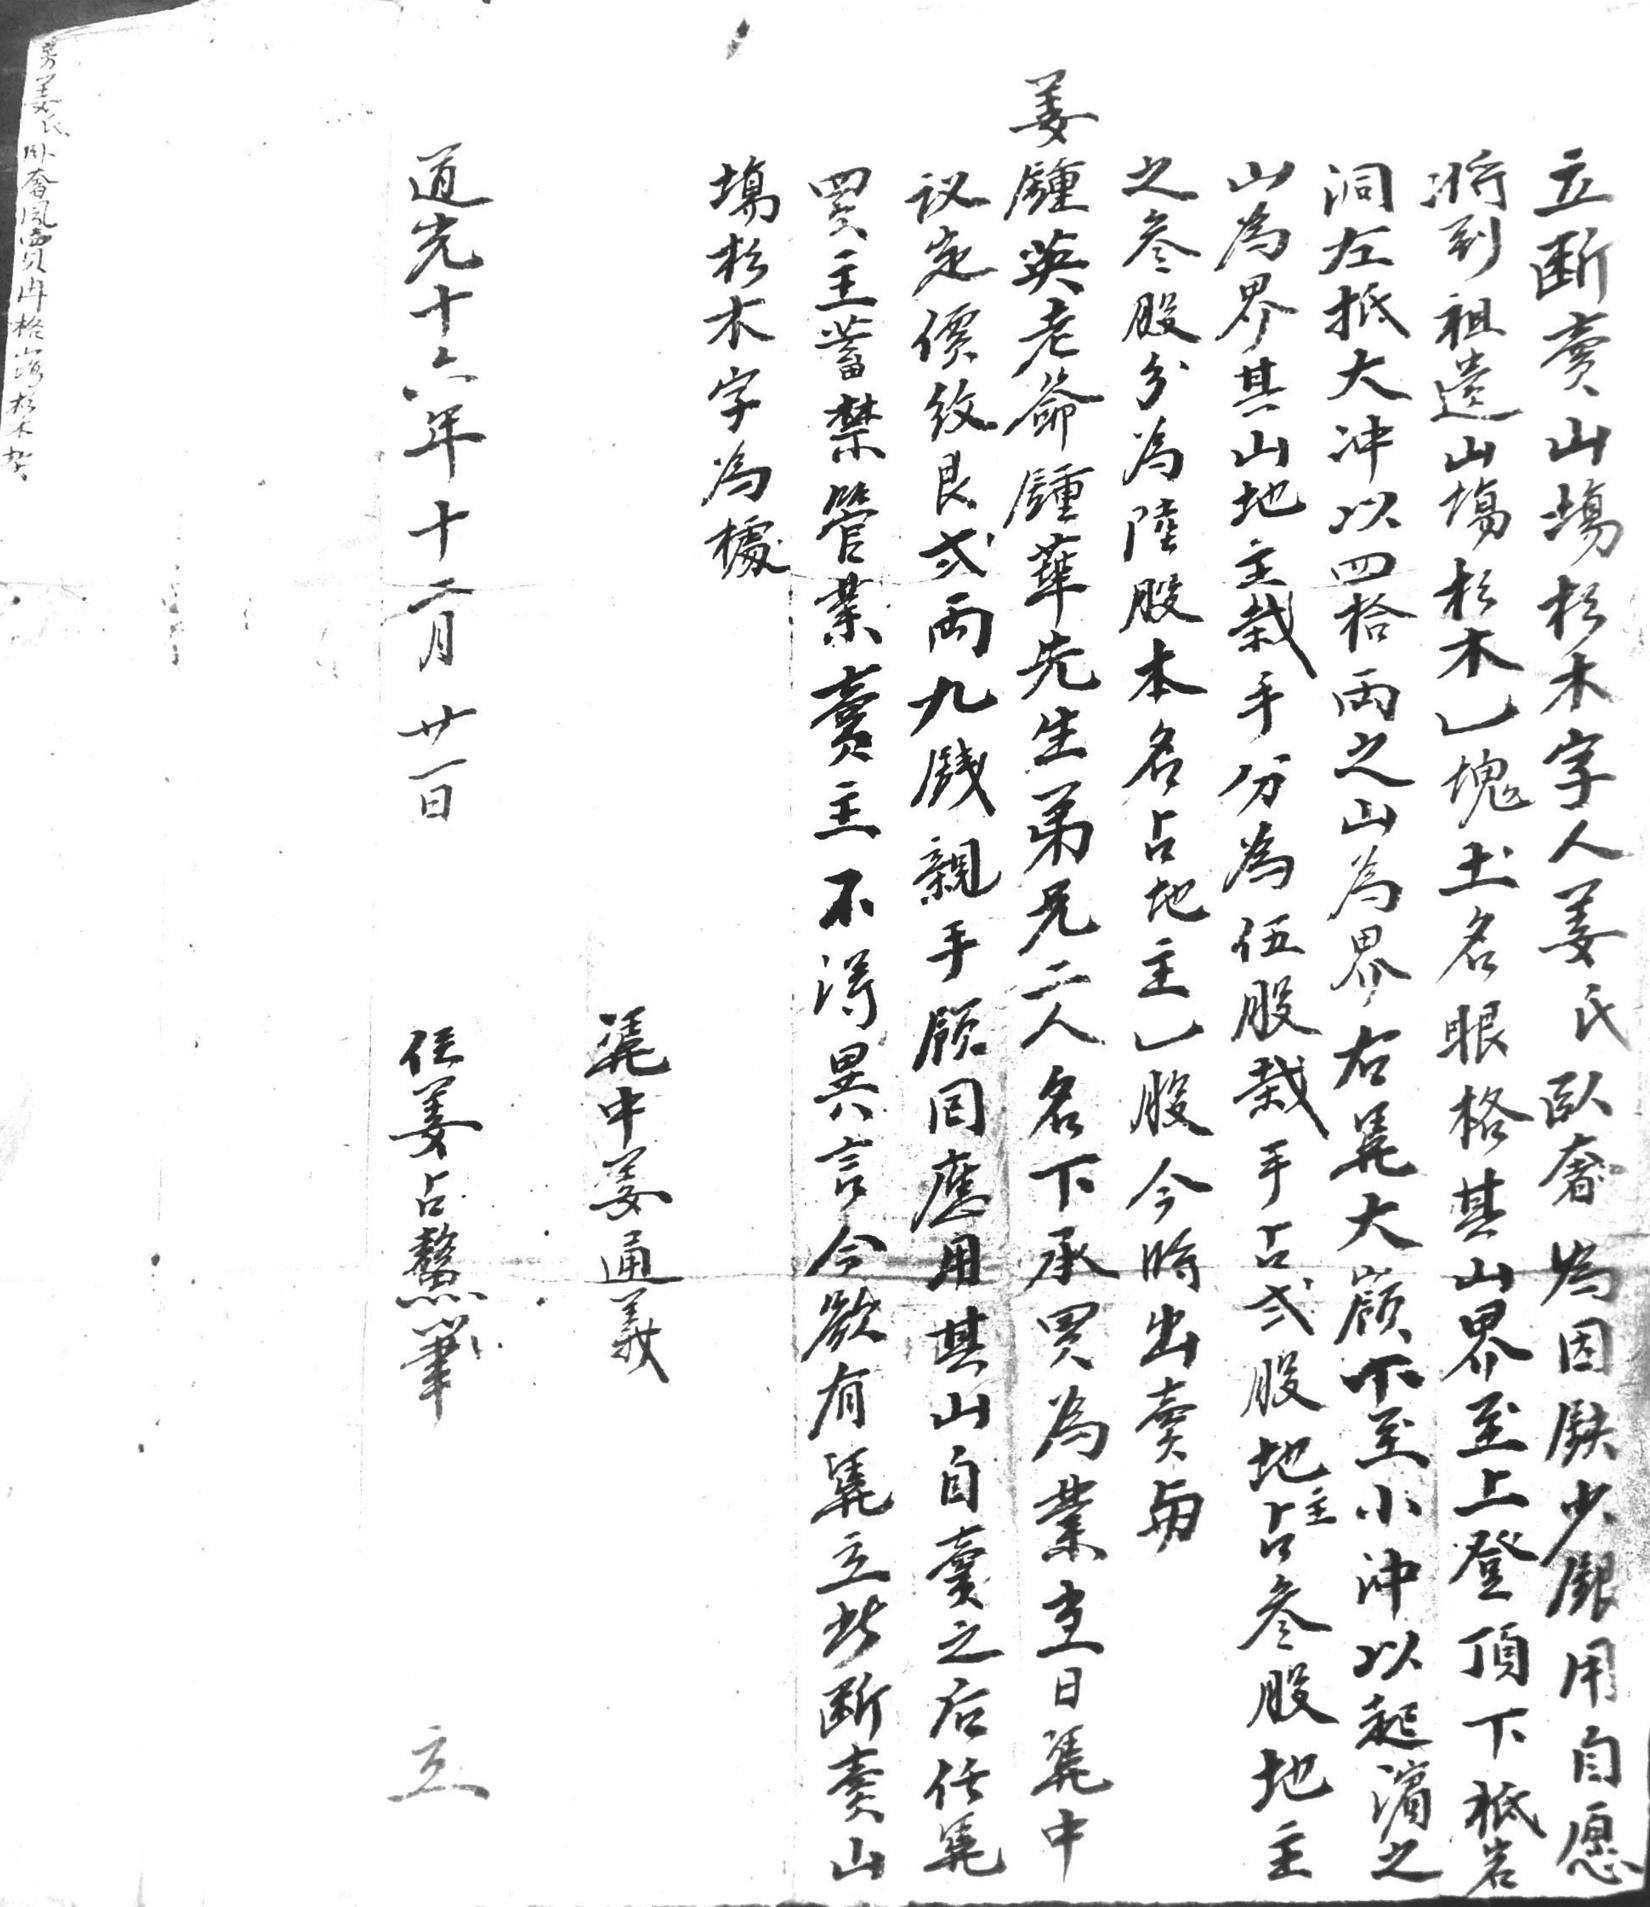 立断賣山塲杉木字人姜氏臥奢為因缺少銀用自愿
將到祖遺山塲杉木乙塊土名眼格其山界至上登頂下抵岩
洞左抵大冲以四拾两之山為界右凴大嶺下至小冲以起濱之
山為界其山地主栽手分為伍股栽手占弍股地主占叁股地主
之叁股分為陸股本名占地主乙股今時出賣與
姜鍾英老爺鍾華先生弟兄二人名下承買為業當日凴中
议定價紋艮弍两九錢親手領囘應用其山自賣之后任凴
買主蓄禁管業賣主不得異言今欲有凴立此断賣山
塲杉木字為據
凴中姜通義
道光十六年十二月廿一日 任姜占鰲筆 立
姜氏卧奢鳳賣冉格山塲杉木契